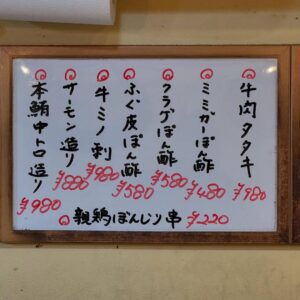 牛肉タタキ ¥980
ミミガーぽん酢 ¥480
クラゲぽん酢 ¥580
ふぐ皮ぽん酢 ¥580
牛ミノ刺 ¥980
サーモン造り ¥880
本鮪中トロ造り ¥980
親鶏ぼんじり串 ¥220